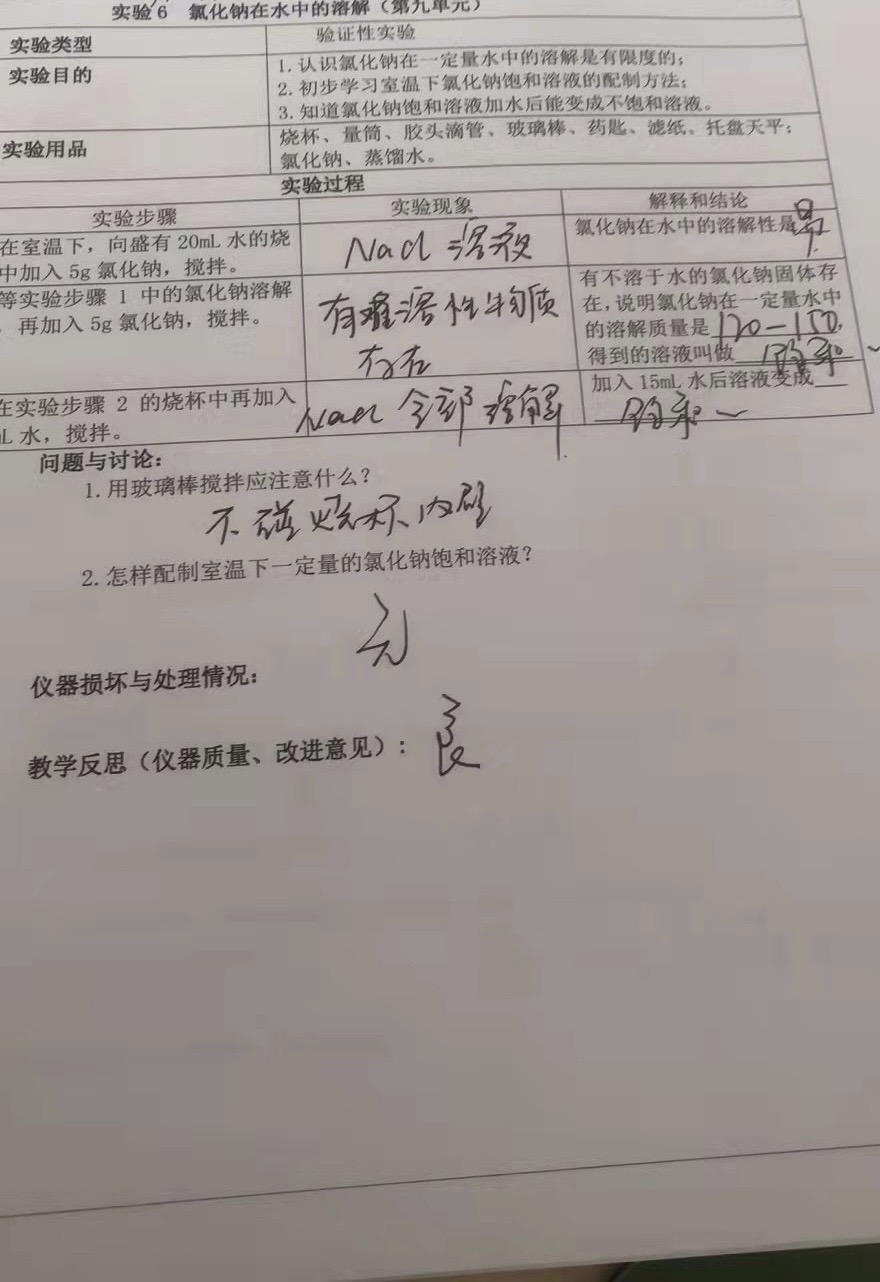 实验6 氯化钠在水中的溶解（第九单元）
实验类型 验证性实验
实验目的 1.认识氯化钠在一定量水中的溶解是有限度的；
2.初步学习室温下氯化钠饱和溶液的配制方法；
3.知道氯化钠饱和溶液加水后能变成不饱和溶液。
实验用品 烧杯、量筒、胶头滴管、玻璃棒、药匙、滤纸、托盘天平；
氯化钠、蒸馏水。
实验过程
实验步骤 实验现象 解释和结论
在室温下，向盛有20mL水的烧
中加入5g氯化钠，搅拌。
NaCl 溶
氯化钠在水中的溶解性是
等实验步骤1中的氯化钠溶解
，再加入5g氯化钠，搅拌。
有难溶性物质
存在
有不溶于水的氯化钠固体存
在，说明氯化钠在一定量水中
的溶解质量是120-150，
得到的溶液叫做
在实验步骤2的烧杯中再加入
L水，搅拌。
NaCl 全部溶解
加入15mL水后溶液变成
问题与讨论：
1.用玻璃棒搅拌应注意什么？
不碰烧杯内壁
2.怎样配制室温下一定量的氯化钠饱和溶液？
仪器损坏与处理情况：
无
教学反思（仪器质量、改进意见）：
良